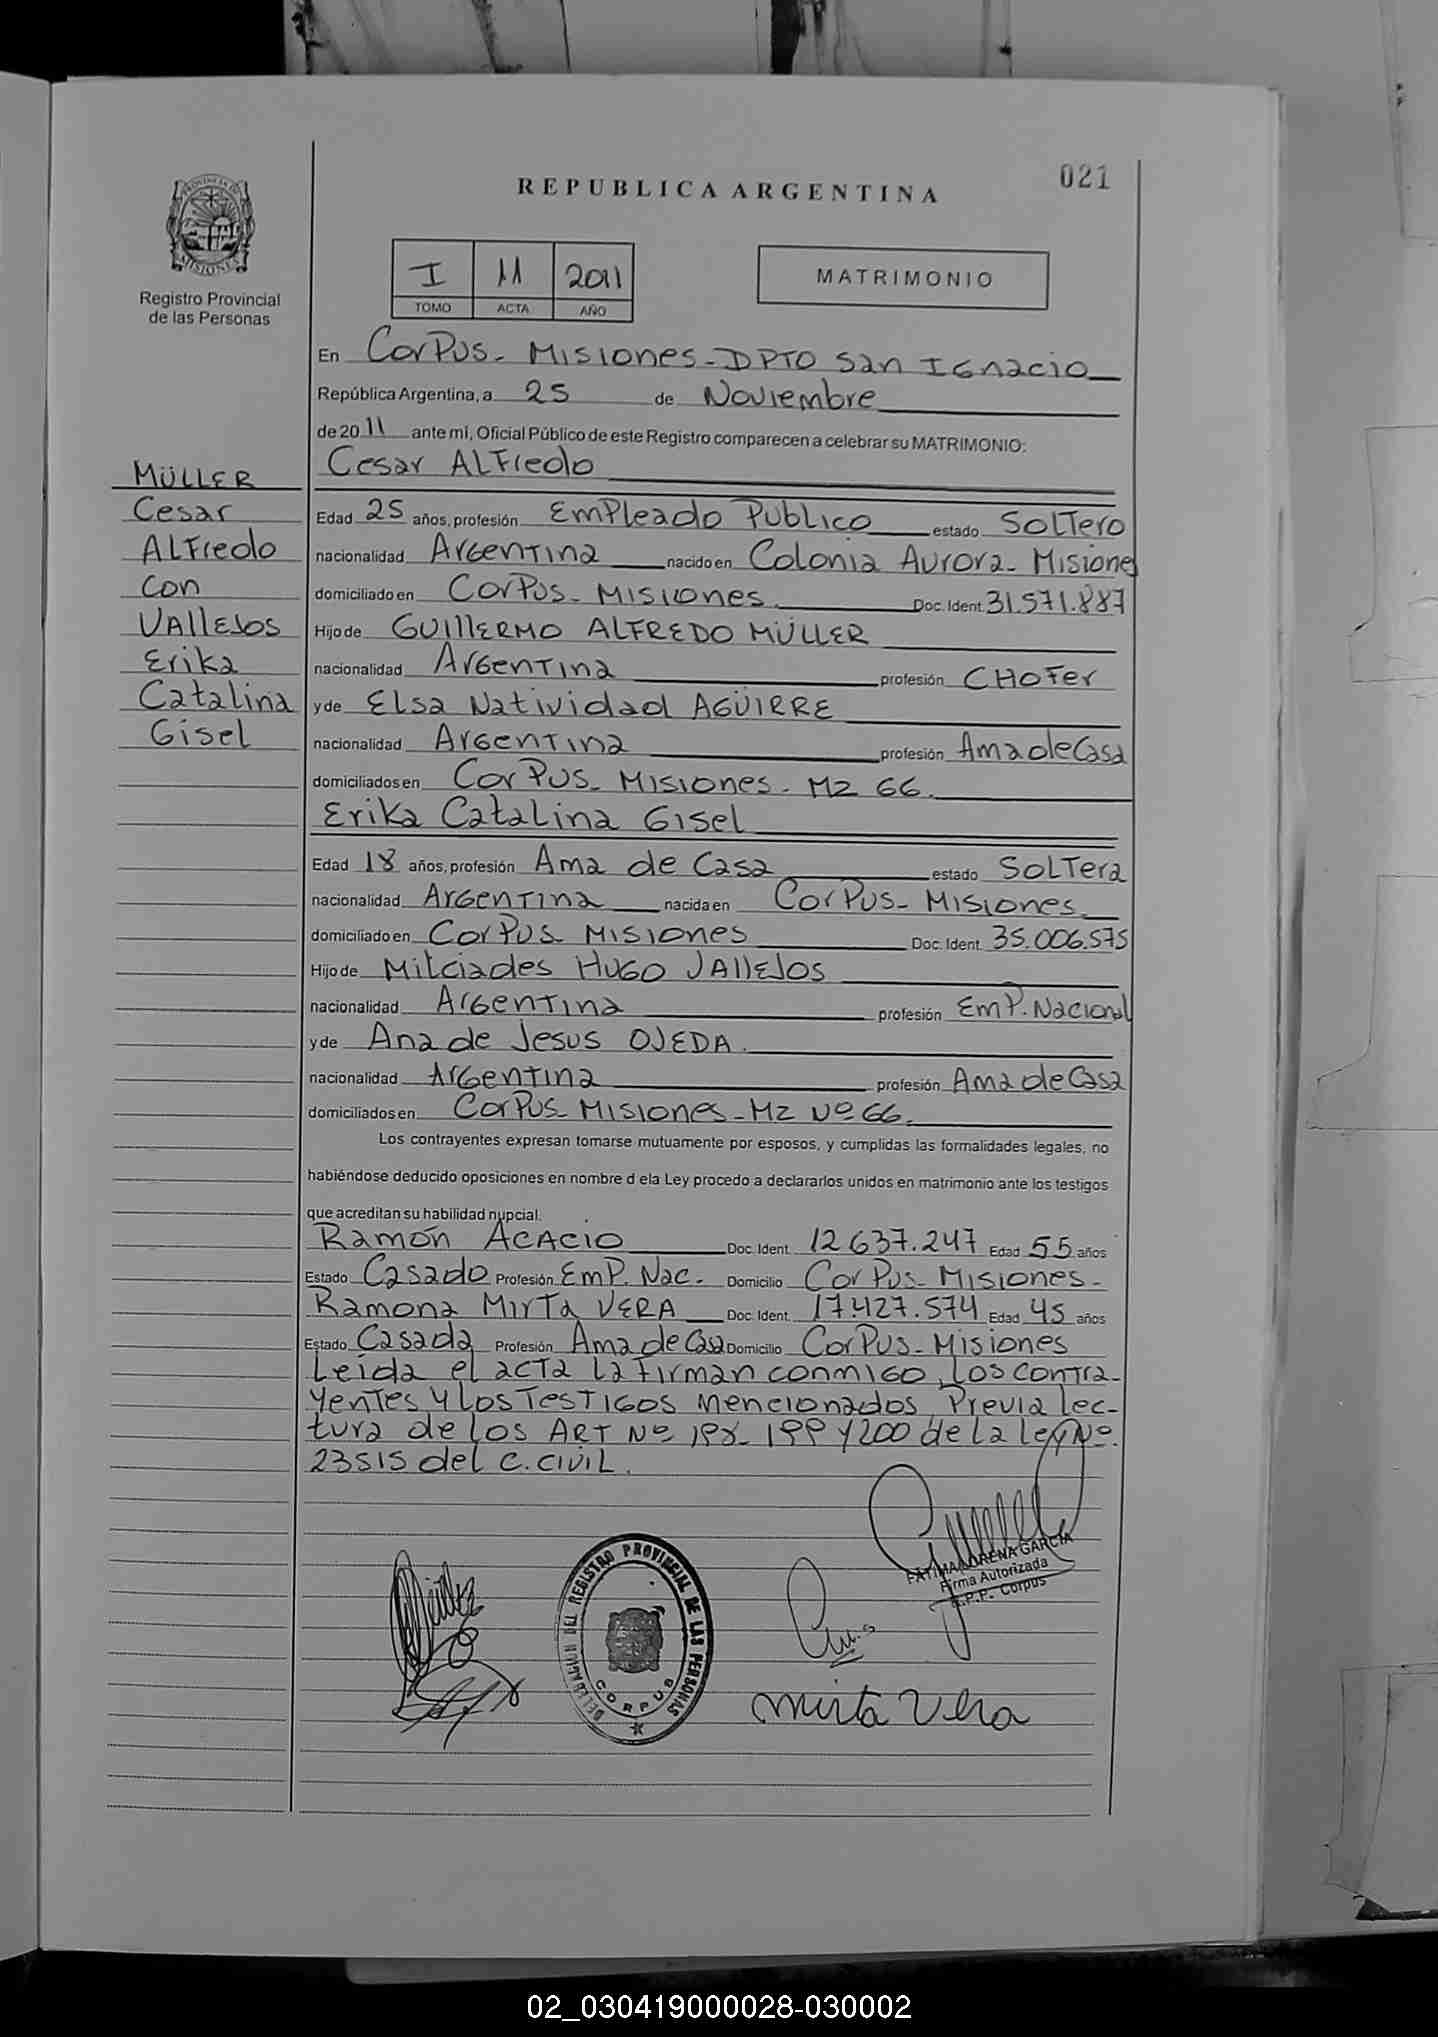 021
REPUBLICA ARGENTINA
PROVINCIA DE MISIONES
Registro Provincial
de las Personas
I 11 2011
TOMO ACTA AÑO
MATRIMONIO
En Corpus - Misiones - DPTO San Ignacio
República Argentina, a 25 de Noviembre
de 2011 ante mí, Oficial Público de este Registro comparecen a celebrar su MATRIMONIO:
Cesar Alfredo
MÜLLER
Cesar
Alfredo
con
Vallejos
Erika
Catalina
Gisel
Edad 25 años, profesión Empleado Publico estado Soltero
nacionalidad Argentina nacido en Colonia Aurora - Misiones
domiciliado en Corpus - Misiones Doc. Ident. 31.571.887
Hijo de GUILLERMO ALFREDO MÜLLER
nacionalidad Argentina profesión CHOFER
y de Elsa Natividad AGÜIRRE
nacionalidad Argentina profesión Ama de Casa
domiciliados en Corpus - Misiones - Mz 66.
Erika Catalina Gisel
Edad 18 años, profesión Ama de Casa estado Soltera
nacionalidad Argentina nacida en Corpus - Misiones
domiciliado en Corpus - Misiones Doc. Ident. 35.006.575
Hijo de Milciades Hugo Vallejos
nacionalidad Argentina profesión Emp. Nacional
y de Ana de Jesus OJEDA.
nacionalidad Argentina profesión Ama de Casa
domiciliados en Corpus - Misiones - Mz Nº 66.
Los contrayentes expresan tomarse mutuamente por esposos, y cumplidas las formalidades legales, no
habiéndose deducido oposiciones en nombre d ela Ley procedo a declararlos unidos en matrimonio ante los testigos
que acreditan su habilidad nupcial.
Ramón Acacio Doc. Ident. 12.637.247 Edad 55 años
Estado Casado Profesión Emp. Nac. Domicilio Corpus - Misiones -
Ramona Mirta VERA Doc. Ident. 17.427.574 Edad 45 años
Estado Casada Profesión Ama de Casa Domicilio Corpus - Misiones
Leída el acta la firman conmigo, los contra-
yentes y los testigos mencionados, Previa lec-
tura de los ART Nº 198- 199 y 200 de la ley Nº
23515 del C. Civil.
FATIMA LORENA GARCIA
Firma Autorizada
R.P.P.- Corpus
DELEGACION DEL REGISTRO PROVINCIAL DE LAS PERSONAS
CORPUS
Mirta Vera
02_030419000028-030002